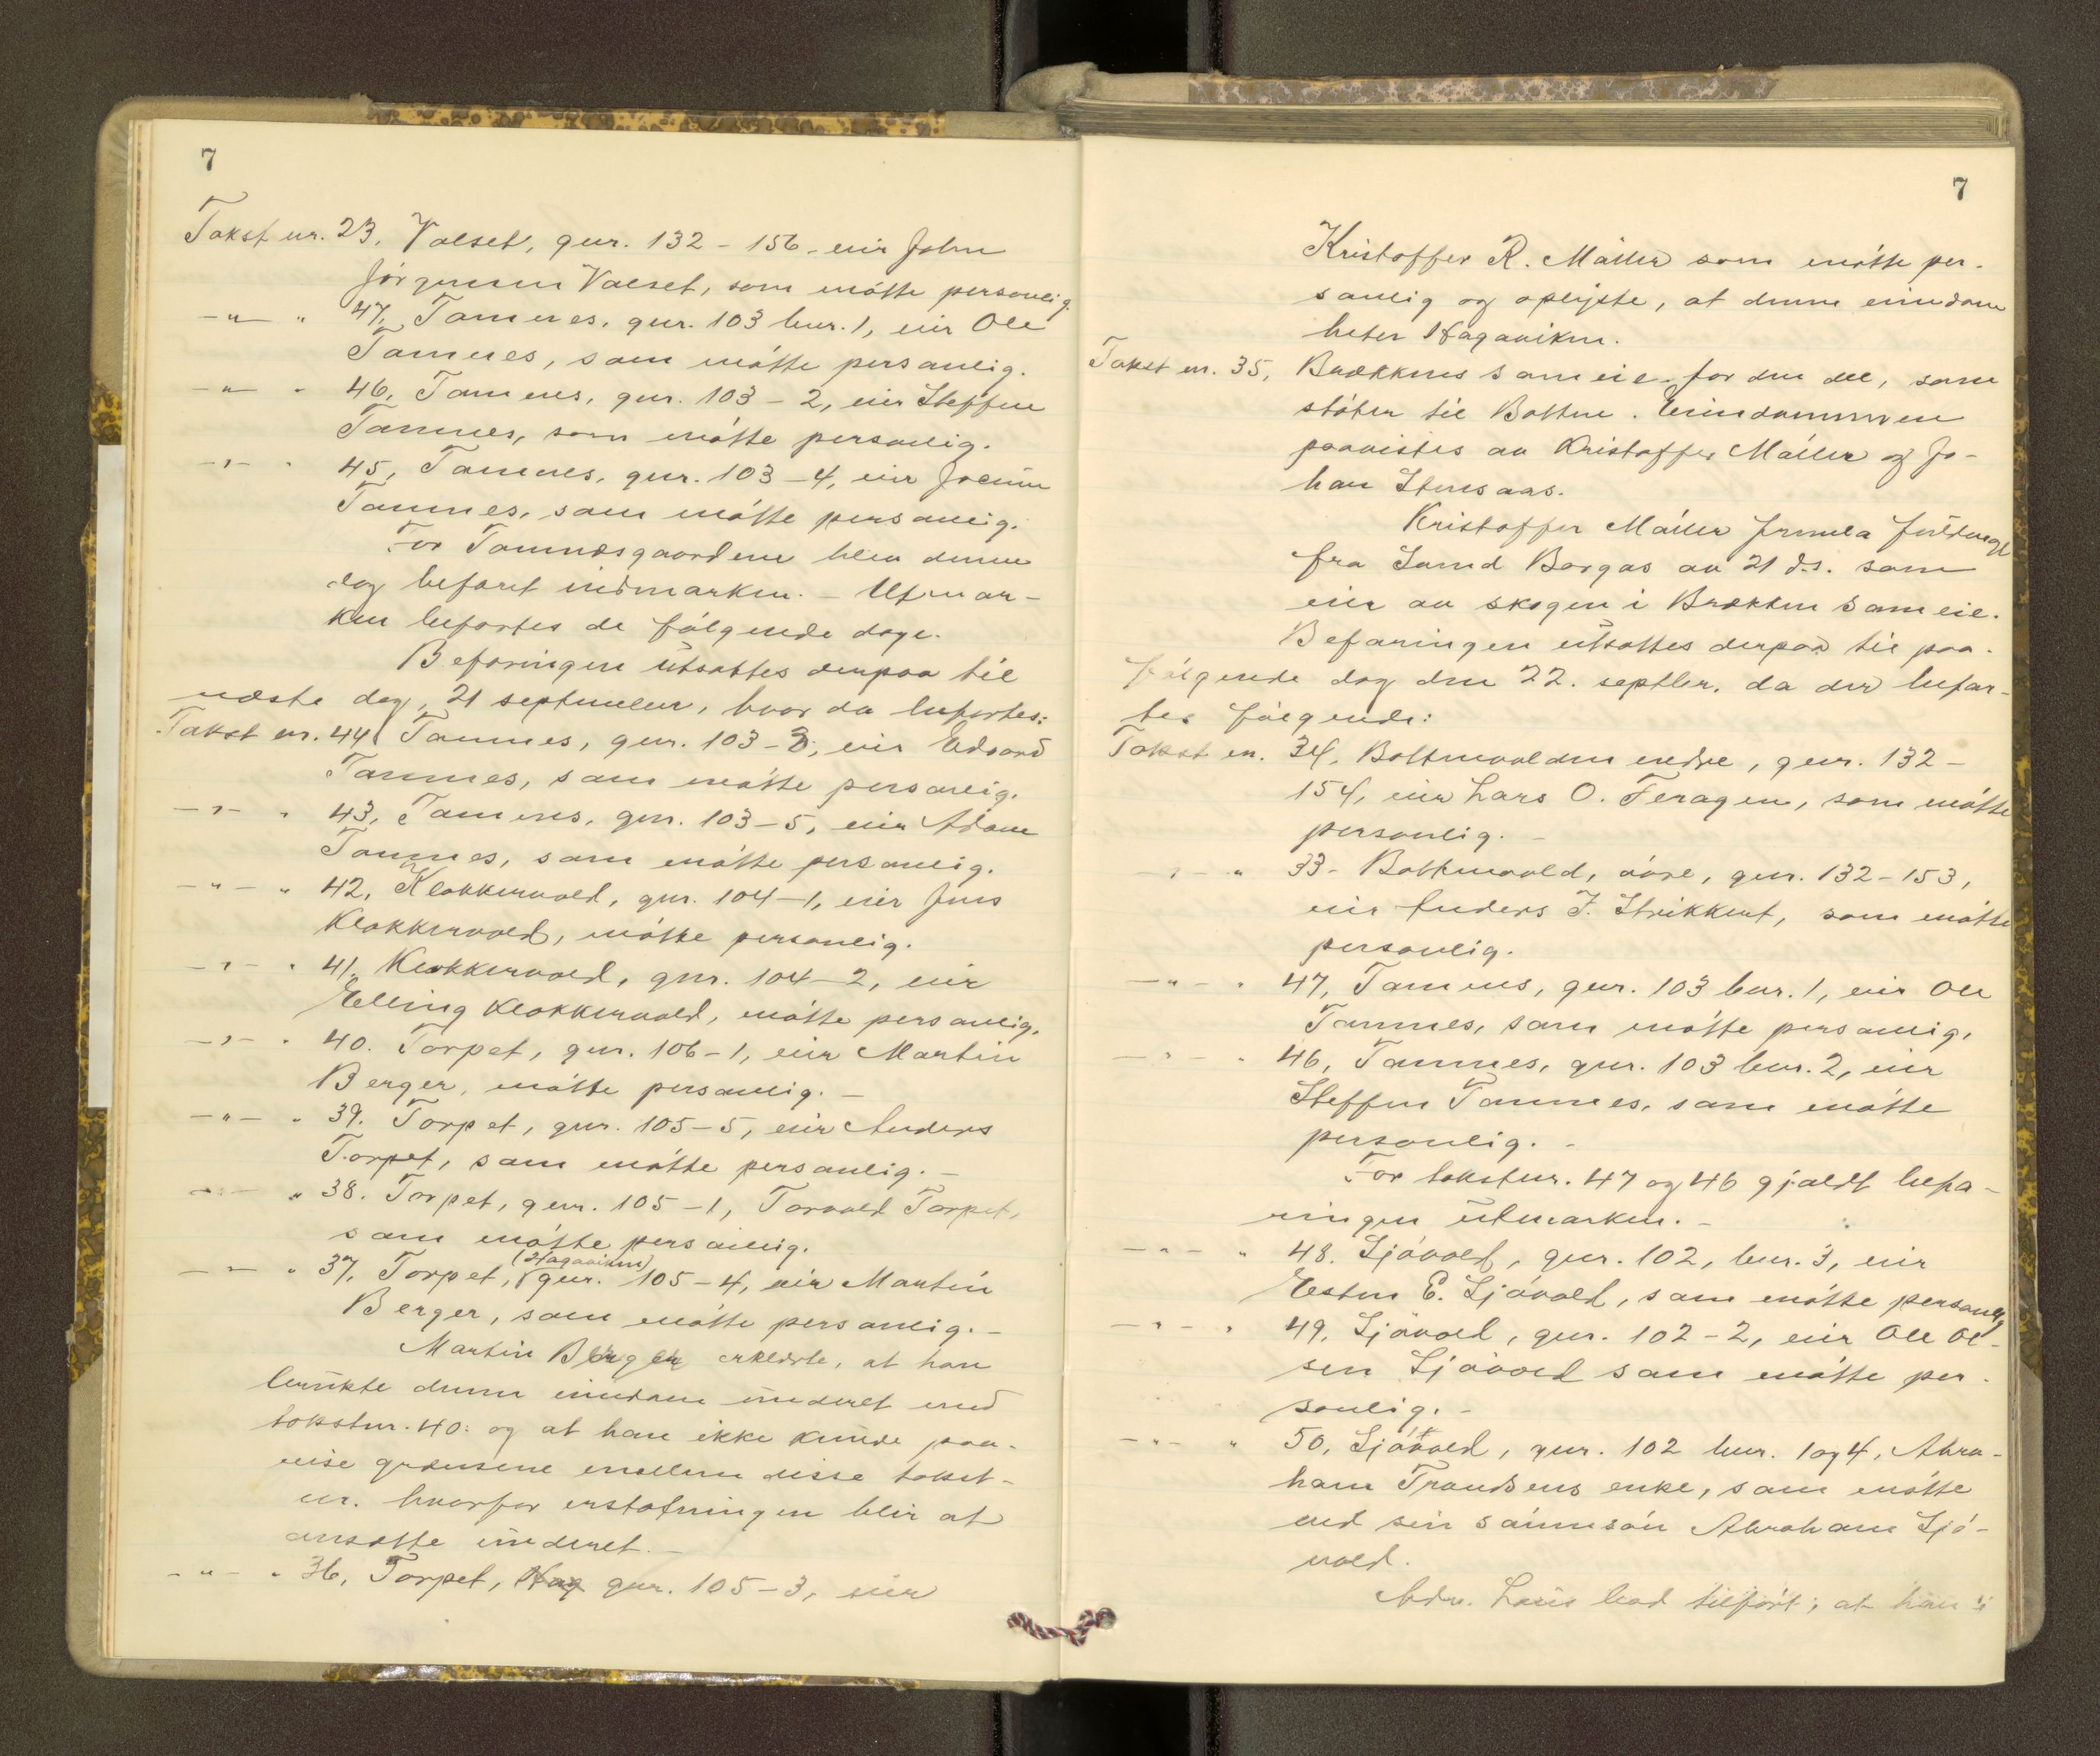 7
Takst nr. 23, Valset, gnr. 132 - 156 - eier John
Jörgensen Valset, som mötte personlig.
-"- " 47, Tamnes, gnr. 103 bnr. 1, eier Ole
Tamnes, som mötte personlig.
-"- " 46, Tamnes, gnr. 103 - 2, eier Steffen
Tamnes, som mötte personlig.
-"- " 45, Tamnes, gnr. 103 - 4, eier Joenn
Tamnes, som mötte personlig.
For Tamnesgaardene blev denne
dag befaret indmarken. - Utmar-
ken befortes de fölgende dage.
Befaringen utsattes derpaa til
næste dag, 21 september, hvor da befortes:
Takst nr. 44, Tamnes, gnr. 103 - 3, eier Edvard
Tamnes, som mötte personlig.
-"- " 43, Tamnes, gnr. 103 - 5, eier Adam
Tamnes, som mötte personlig.
-"- " 42, Klokkervold, gnr. 104 - 1, eier Jens
Klokkervold, mötte personlig.
-"- " 41, Klokkervold, gnr. 104 - 2, eier
Elling Klokkervold, mötte personlig.
-"- " 40. Torpet, gnr. 106 - 1, eier Martin
Berger, mötte personlig. -
-"- " 39. Torpet, gnr. 105 - 5, eier Anders
Torpet, som mötte personlig. -
-"- " 38. Torpet, gnr. 105 - 1, Torvald Torpet,
som mötte personlig.
-"- " 37, Torpet, (Hagaviken) gnr. 105 - 4, eier Martin
Berger, som mötte personlig. -
Martin Berger erklærte, at han
brukte denne eiendom underet med
takstnr. 40. og at han ikke kunde paa-
vise grænsene mellem disse takst-
nr. hvorfor erstatningen blir at
ansætte underet. -
-"- " 36, Torpet, Hag gnr. 105 - 3, eier
7
Kristoffer R. Möller som mötte per-
sonlig og oplyste, at denne eiendom
heter Hagaviken.
Takst nr. 35, Brækkens sameie - for den del, som
stöter til Botten. Eiendommen
paavistes av Kristoffer Möller og Jo-
han Stensaas.
Kristoffer Möller fremla fuldmagt
fra Samd Borgos av 21 d.s. som
eier av skogen i Brækken sameie.
Befaringen utsattes derpaa til paa-
fölgende dag den 22. septbr. da der befar-
tes fölgende:
Takst nr. 34, Bottenvolden nedre, gnr. 132 -
154, eier Lars O. Feragen, som mötte
personlig. -
-"- " 33 - Bottenvold, övre, gnr. 132 - 153,
eier Anders J. Strikkert, som mötte
personlig.
-"- " 47, Tamnes, gnr. 103 bnr. 1, eier Ole
Tamnes, som mötte personlig,
-"- " 46, Tamnes, gnr. 103 bnr. 2, eier
Steffen Tamnes, som mötte
personlig. -
For takstnr. 47 og 46 gjaldt befa-
ringen utmarken. -
-"- " 48. Sjövold, gnr. 102, bnr. 3, eier
Esten E. Sjövold, som mötte personlig
-"- " 49, Sjövold, gnr. 102 - 2, eier Ole Ol-
sen Sjövold som mötte per-
sonlig. -
-"- " 50, Sjövold, gnr. 102 bnr. 1 og 4, Abra-
ham Trondsens enke, som mötte
ved sin sönnesön Abraham Sjö-
vold.
Adv. bad tilfört; at han i